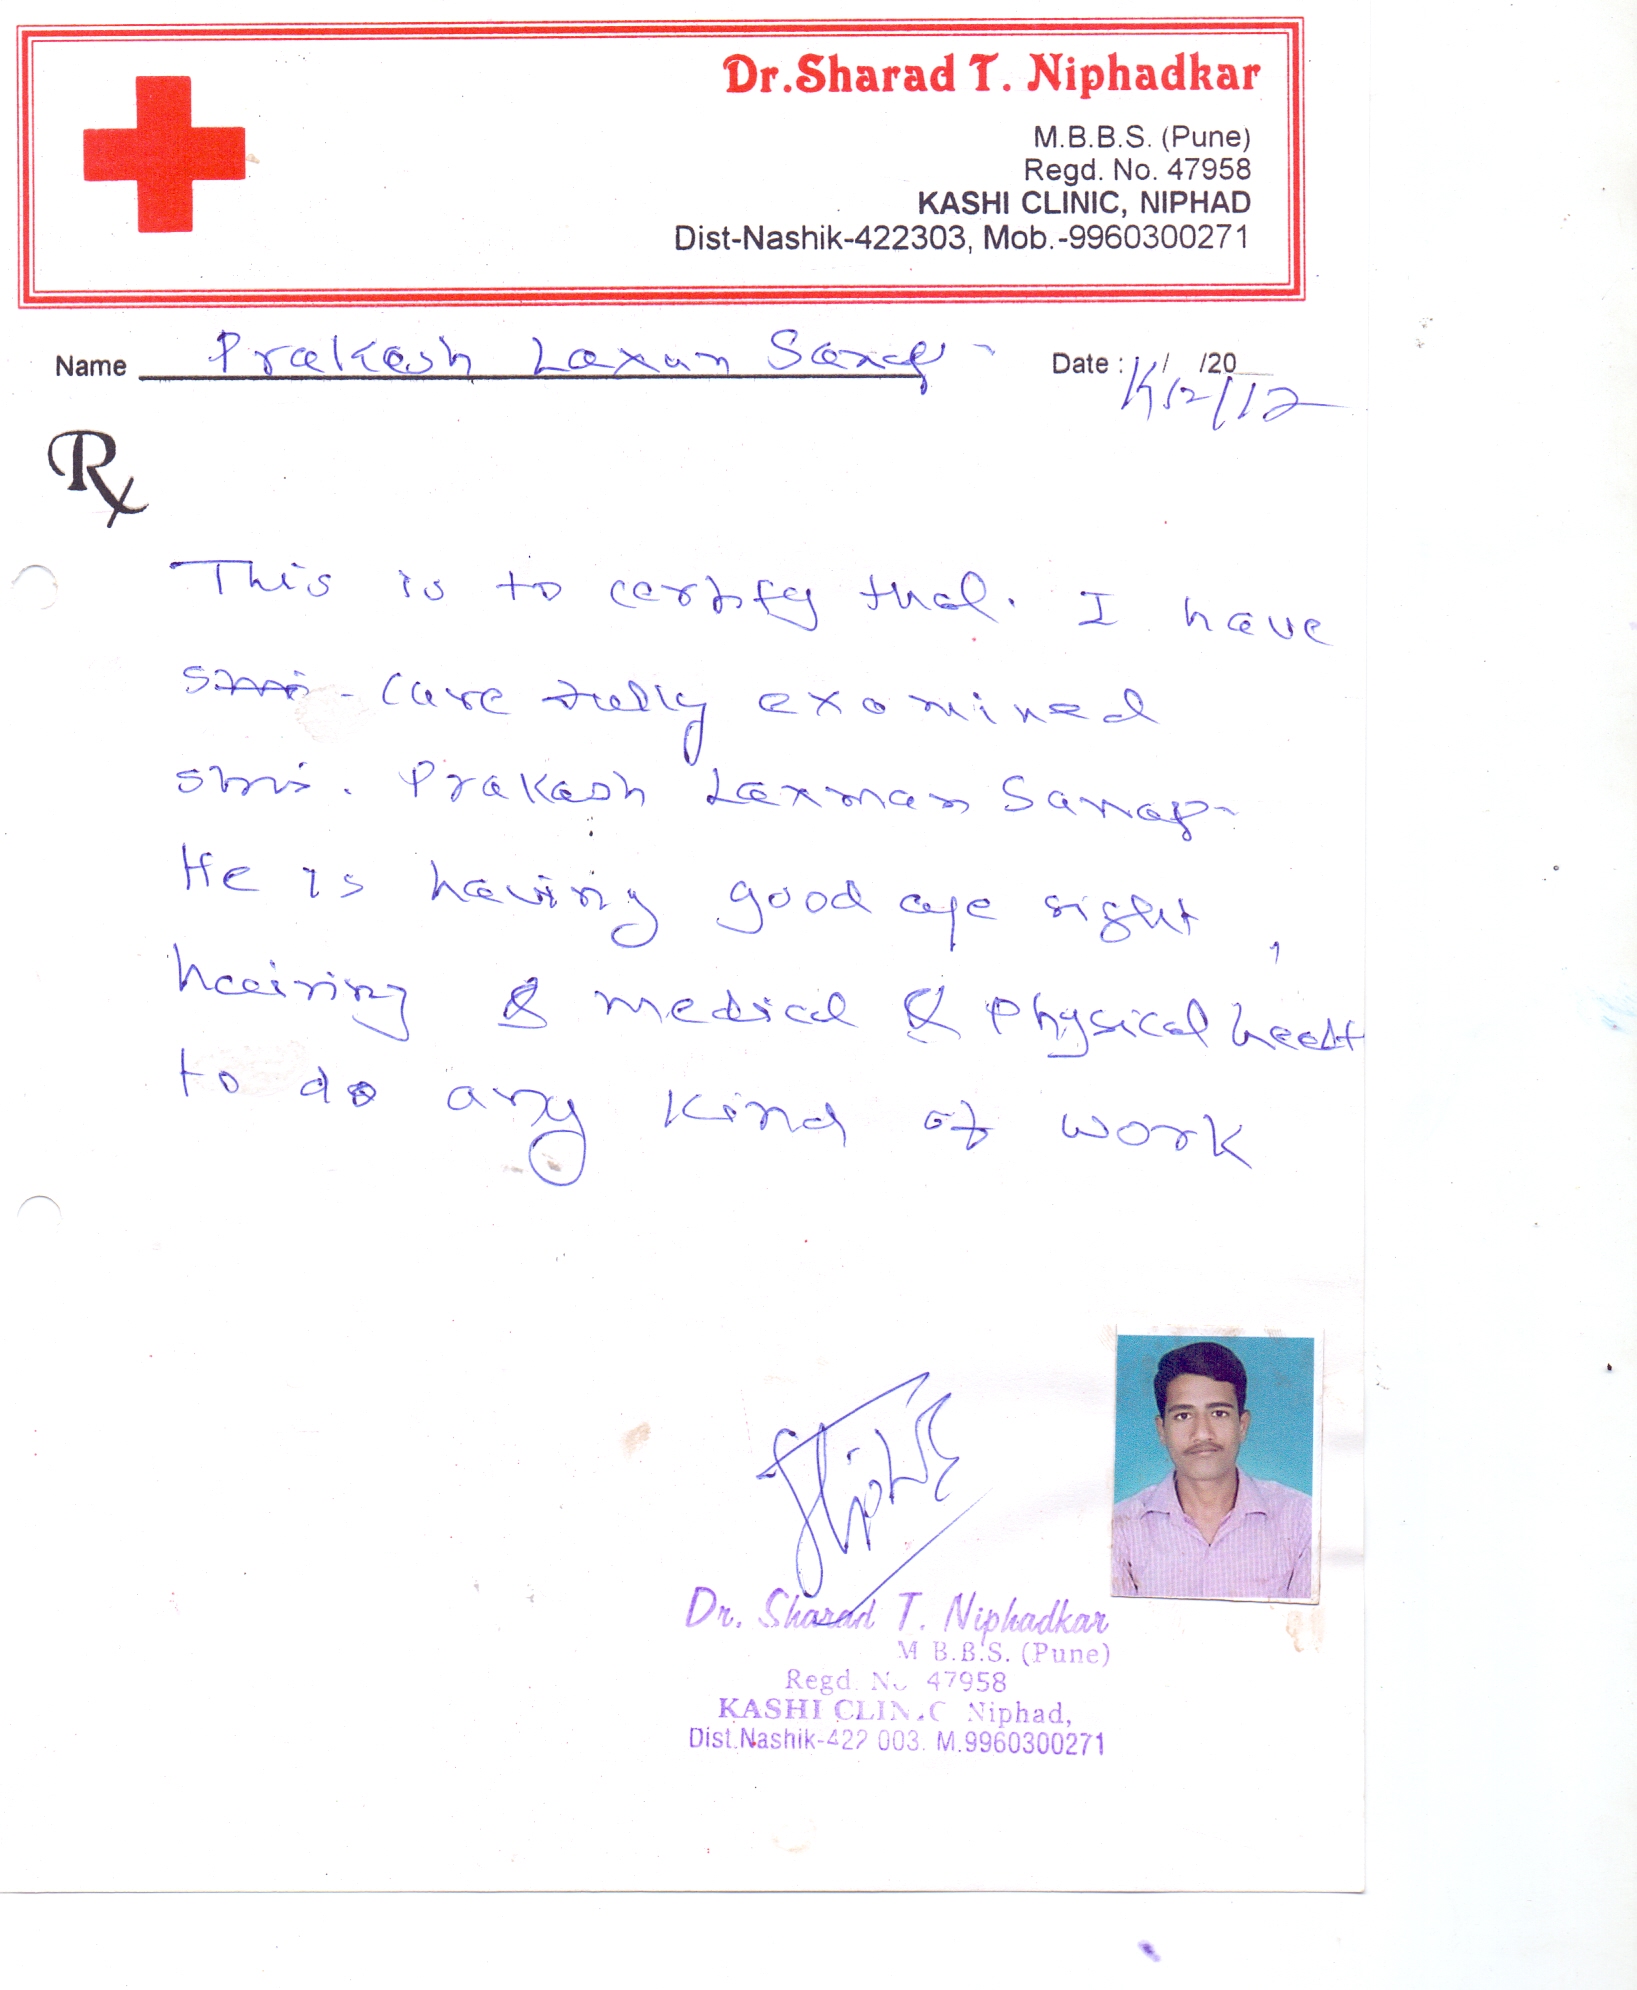 Dr.Sharad T. Niphadkar
M.B.B.S. (Pune)
Regd. No. 47958
KASHI CLINIC, NIPHAD
Dist-Nashik-422303, Mob.-9960300271
Name Prakash Laxman Sanap
Date : / /20
/12/12
Rx
This is to certify that. I have
carefully examined
shri. Prakash Laxman Sanap
He is having good eye sight,
heairing & medical & physical healt
to do any kind of work
Dr. Sharad T. Niphadkar
M B.B.S. (Pune)
Regd. No 47958
KASHI CLINIC Niphad,
Dist.Nashik-422 003. M.9960300271